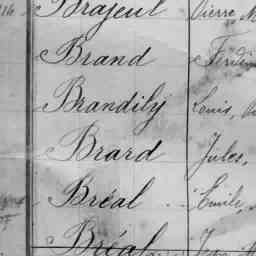 Brajeul Pierre
Brand
Brandily Louis,
Brard Jules,
Bréal Emile,
Bréal